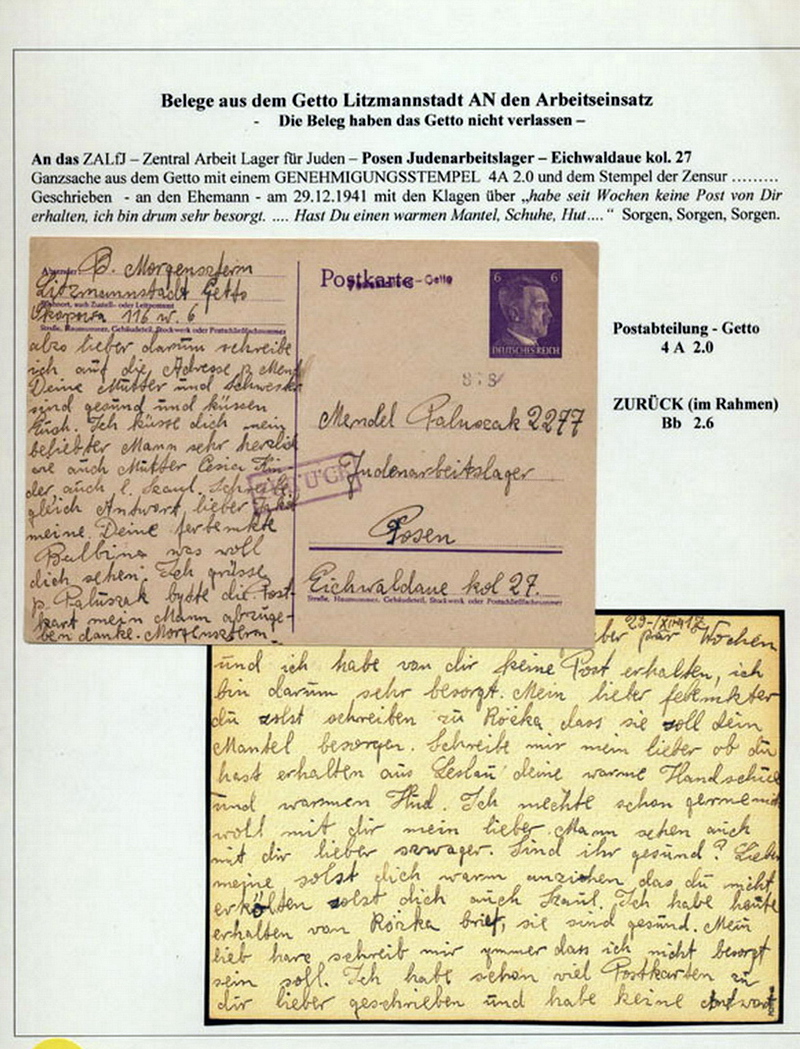 Belege aus dem Getto Litzmannstadt AN den Arbeitseinsatz
- Die Beleg haben das Getto nicht verlassen –
An das ZALfJ – Zentral Arbeit Lager für Juden – Posen Judenarbeitslager – Eichwaldaue kol. 27
Ganzsache aus dem Getto mit einem GENEHMIGUNGSSTEMPEL 4A 2.0 und dem Stempel der Zensur ………
Geschrieben - an den Ehemann - am 29.12.1941 mit den Klagen über „habe seit Wochen keine Post von Dir
erhalten, ich bin drum sehr besorgt. .... Hast Du einen warmen Mantel, Schuhe, Hut....“ Sorgen, Sorgen, Sorgen.
Absender: B. Morgensztern
Litzmannstadt Getto
Wohnort, auch Zustell- oder Leitpostamt
116 W. 6
Straße, Hausnummer, Gebäudeteil, Stockwerk oder Postschließfachnummer
also lieber darum schreibe
ich auf die Adresse p. Mend
Deine Mutter und Schwester
sind gesund und küssen
Euch. Ich küsse dich mein
beliebter Mann sehr herzlich
wie auch Mutter Cesia Kin-
der, auch l. Szaul. Schreibe
gleich Antwort, lieber
meine. Deine
Balbina was woll
dich sehen. Ich grüsse
p. Paluszak bytte die Post-
kart mein Mann abzuge-
ben danke. Morgensztern
Postkarte
-Getto
6 6
DEUTSCHES REICH
Mendel Paluszak 2277
Judenarbeitslager
ZURÜCK
Posen
Eichwaldaue kol 27.
Straße, Hausnummer, Gebäudeteil, Stockwerk oder Postschließfachnummer
Postabteilung - Getto
4 A 2.0
ZURÜCK (im Rahmen)
Bb 2.6
29-/XII
par Wochen
und ich habe von dir keine Post erhalten, ich
bin darum sehr besorgt. Mein lieber
du solst schreiben zu Rózka dass sie soll dein
Mantel besorgen. Schreibe mir mein lieber ob du
hast erhalten aus Leslau deine warme Handschue
und warmen Hud. Ich mechte schon gerne
woll mit dir mein lieber Mann sehen auch
mit dir lieber szwager. Sind ihr gesund? Lieber
meine solst dich warm anziehen das du nicht
erkölten solst dich auch Szaul. Ich habe heute
erhalten von Rózka brief, sie sind gesund. Mein
lieb harz schreib mir ymmer dass ich nicht besorgt
sein soll. Ich habe schon viel Postkarten zu
dir lieber geschrieben und habe keine Antwort